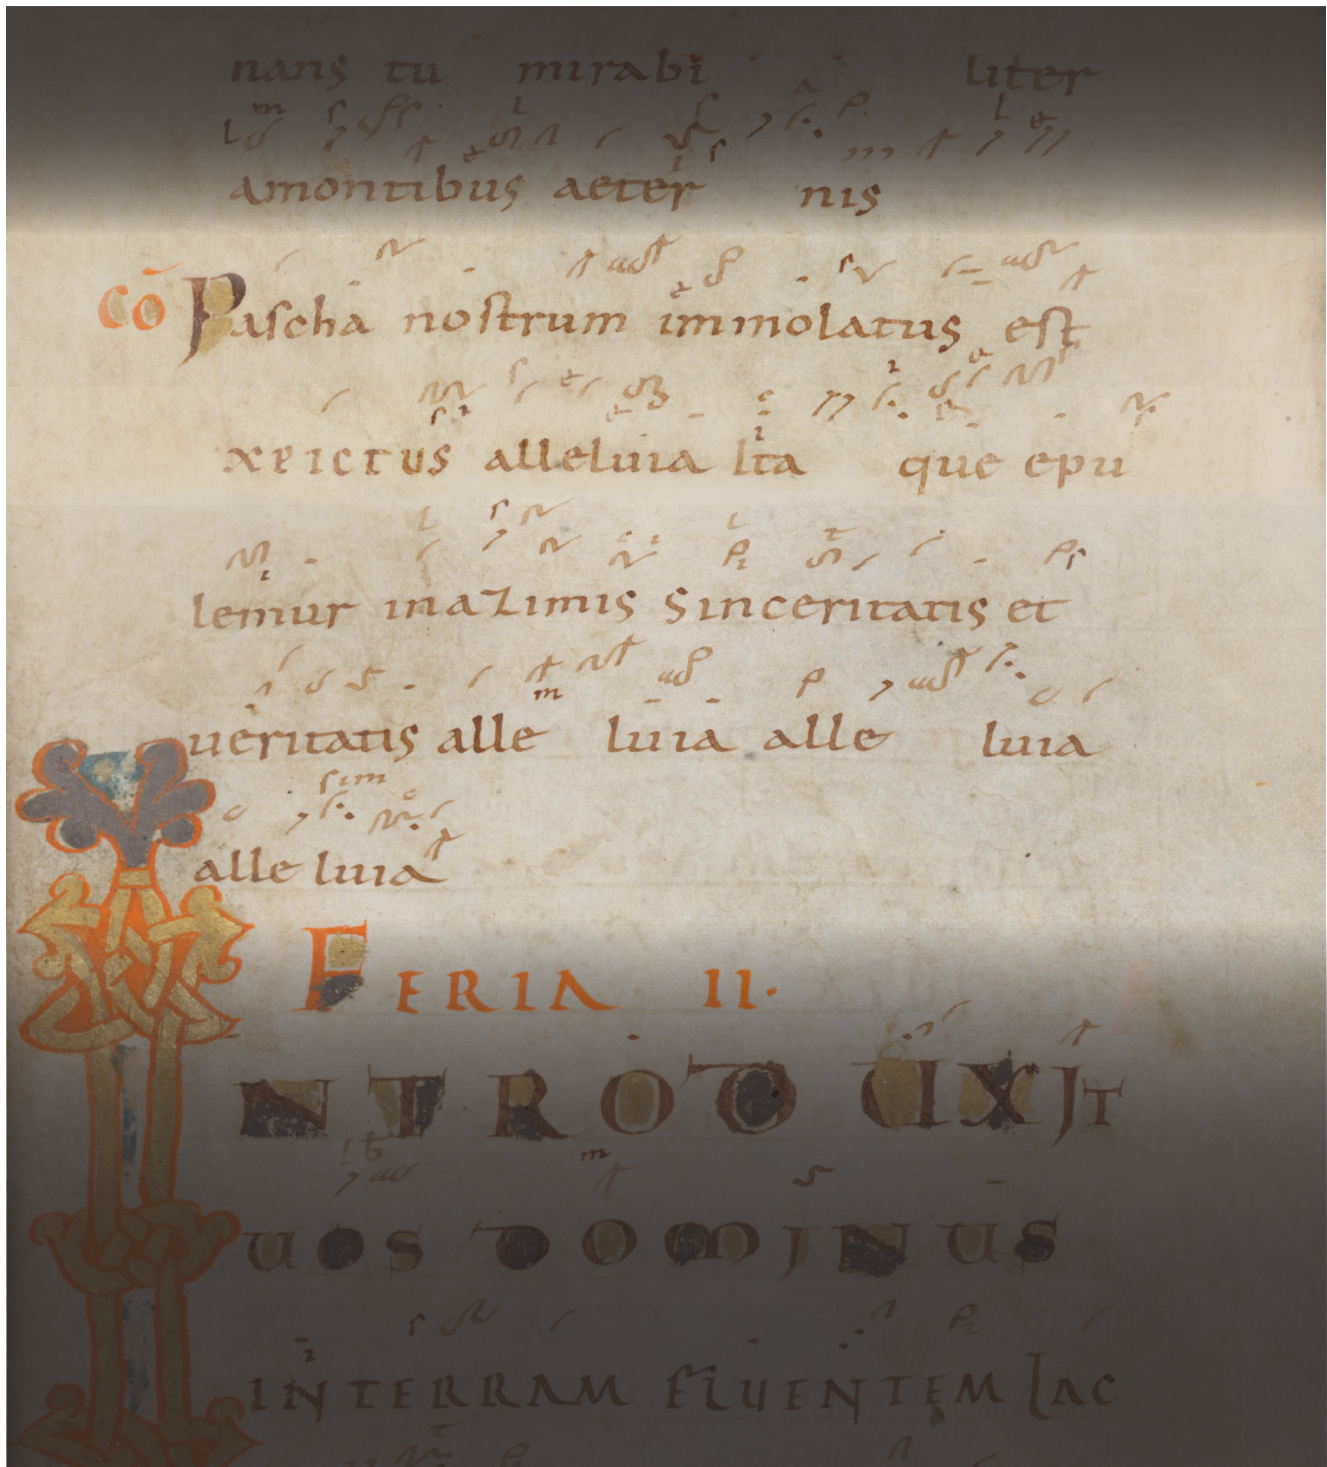 nans tu mirabi liter
amontibus aeter nis
cō Pascha nostrum immolatus est
xpictus alleluia Ita que epu
lemur inazimis sinceritatis et
ueritatis alle luia alle luia
alle luia
FERIA II.
INTRODUXIT
UOS DOMINUS
INTERRAM FLUENTEM LAC